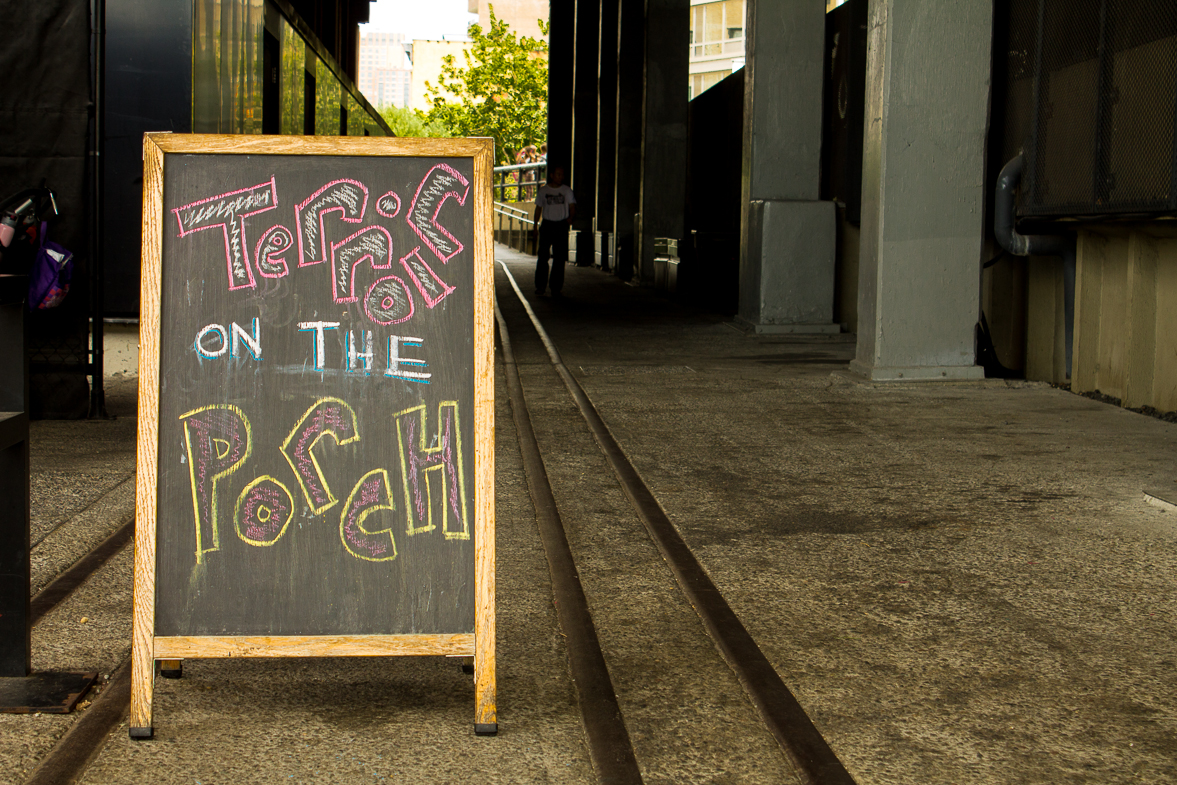 Terroir
ON THE
PorcH